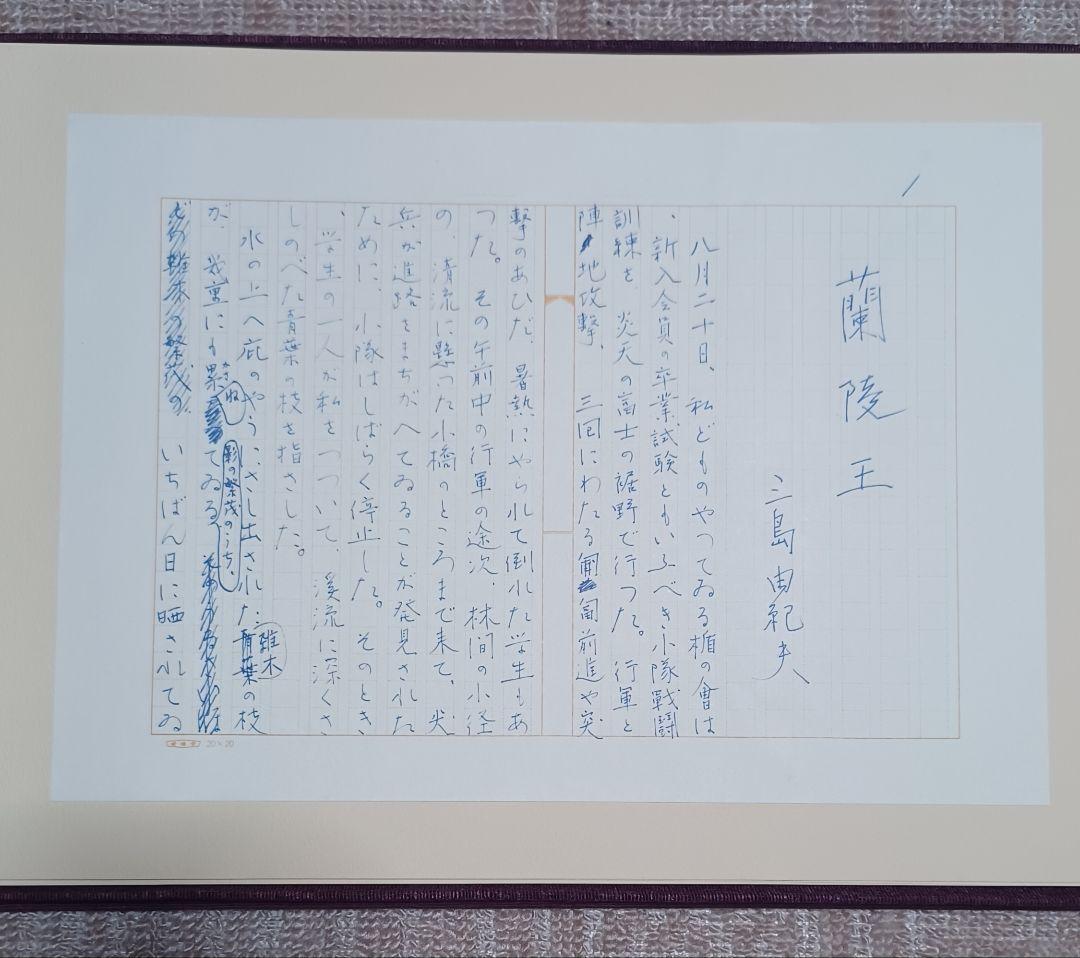 1
蘭陵王
三島由紀夫
八月二十日、私どものやつてゐる楯の會は
、新入会員の卒業試験ともいふべき小隊戦闘
訓練を、炎天の富士の裾野で行つた。行軍と
陣地攻撃、三回にわたる匍匐前進や突
撃のあひだ、暑熱にやられて倒れた学生もあ
つた。その午前中の行軍の途次、林間の小径
の、清流に懸つた小橋のところまで来て、尖
兵が進路をまちがへてゐることが発見された
ために、小隊はしばらく停止した。そのとき
、学生の一人が私をつついて、渓流に深くさ
しのべた青葉の枝を指さした。
水の上へ庇のやうにさし出された雑木の枝
が、幾重にも累ねてゐる影の繁茂のうち、
いちばん日に晒されてゐ
20×20